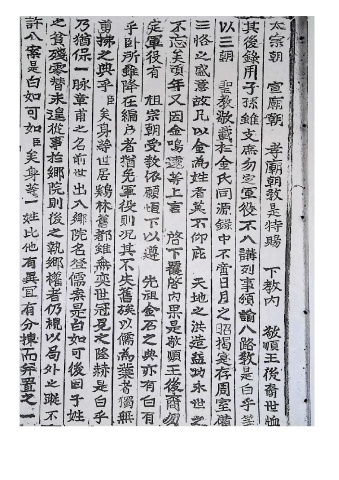 太宗朝 宣廟朝 孝廟朝敎是特賜 下敎內 敬順王後裔世恤
其後錄用子孫雖支庶勿定軍役不入講列事頒諭八路敎是白乎等
以三朝 聖敎敬藏於金氏同源錄中不啻日月之昭揭意存周室備
三恪之盛意故凡以金爲姓者莫不仰庇 天地之洪造益 永世之
不忘矣頃年又因金鳴 等上言 啓下 啓內果是敬順王後裔勿
定軍役有 祖宗朝受敎依願 下以遵 先祖金石之典亦有白有
乎臣所雖降在編戶者猶免軍役則況其不失舊族以儒爲業者獨無
拂之典乎臣矣身等世居鷄林舊都雖無奕世冠冕之隆赫是白乎
乃猶保一脉章甫之名前世出入鄕院名登儒案是白如可後因子姓
之貧殘零替未遑從事於鄕院則後之執鄕權者仍視以局外之蹤不
許入案是白如可臣矣身等一姓比他有異宜有分揀而棄置之一